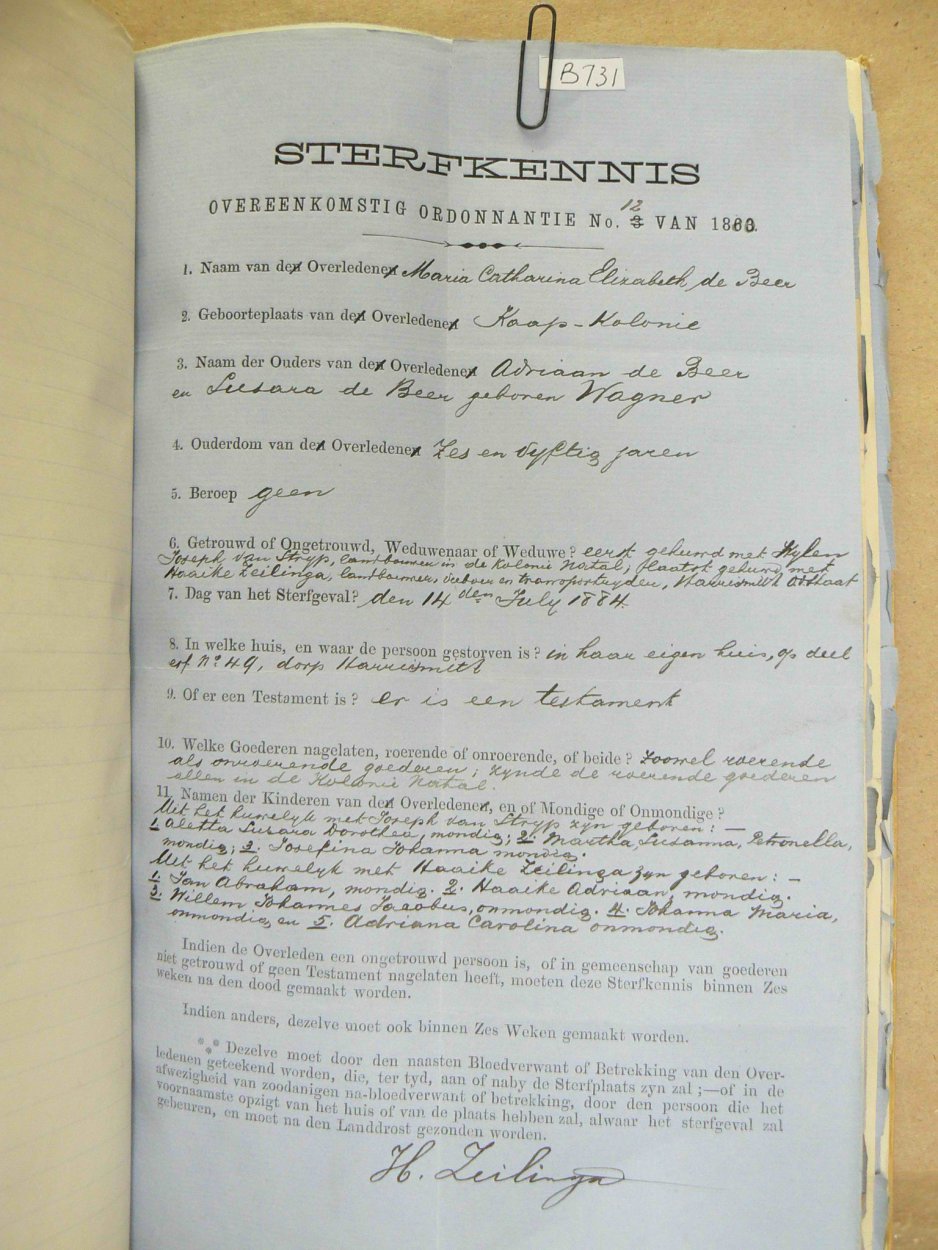 B731
STERFKENNIS
OVEREENKOMSTIG ORDONNANTIE No. 12 VAN 1880.
1. Naam van de Overledene Maria Catharina Elizabeth de Beer
2. Geboorteplaats van de Overledene Kaap-Kolonie
3. Naam der Ouders van de Overledene Adriaan de Beer
en Susara de Beer geboren Wagner
4. Ouderdom van de Overledene Zes en vyftig jaren
5. Beroep geen
6. Getrouwd of Ongetrouwd, Weduwenaar of Weduwe? eerst gehuwd met Wylen
Joseph van Stryp, landbouwer in de Kolonie Natal; laatst gehuwd met
Haaike Zeilinga, landbouwer, veeboer en transportryder, Harrismith OVStaat
7. Dag van het Sterfgeval? den 14den July 1884.
8. In welke huis, en waar de persoon gestorven is? in haar eigen huis, op deel
erf No 49, dorp Harrismith
9. Of er een Testament is? er is een testament
10. Welke Goederen nagelaten, roerende of onroerende, of beide? Zoowel roerende
als onroerende goederen; zynde de roerende goederen
allen in de Kolonie Natal.
11. Namen der Kinderen van de Overledene, en of Mondige of Onmondige?
Uit het huwelyk met Joseph van Stryp zyn geboren: —
1. Aletta Susara Dorothea, mondig; 2. Martha Susanna, Petronella,
mondig; 3. Josefina Johanna mondig.
Uit het huwelyk met Haaike Zeilinga zyn geboren: —
1. Jan Abraham, mondig. 2. Haaike Adriaan, mondig.
3. Willem Johannes Jacobus, onmondig. 4. Johanna Maria,
onmondig en 5. Adriana Carolina onmondig.
Indien de Overleden een ongetrouwd persoon is, of in gemeenschap van goederen
niet getrouwd of geen Testament nagelaten heeft, moeten deze Sterfkennis binnen Zes
weken na den dood gemaakt worden.
Indien anders, dezelve moet ook binnen Zes Weken gemaakt worden.
*** Dezelve moet door den naasten Bloedverwant of Betrekking van den Over-
ledenen geteekend worden, die, ter tyd, aan of naby de Sterfplaats zyn zal;—of in de
afwezigheid van zoodanigen na-bloedverwant of betrekking, door den persoon die het
voornaamste opzigt van het huis of van de plaats hebben zal, alwaar het sterfgeval zal
gebeuren, en moet na den Landdrost gezonden worden.
H. Zeilinga